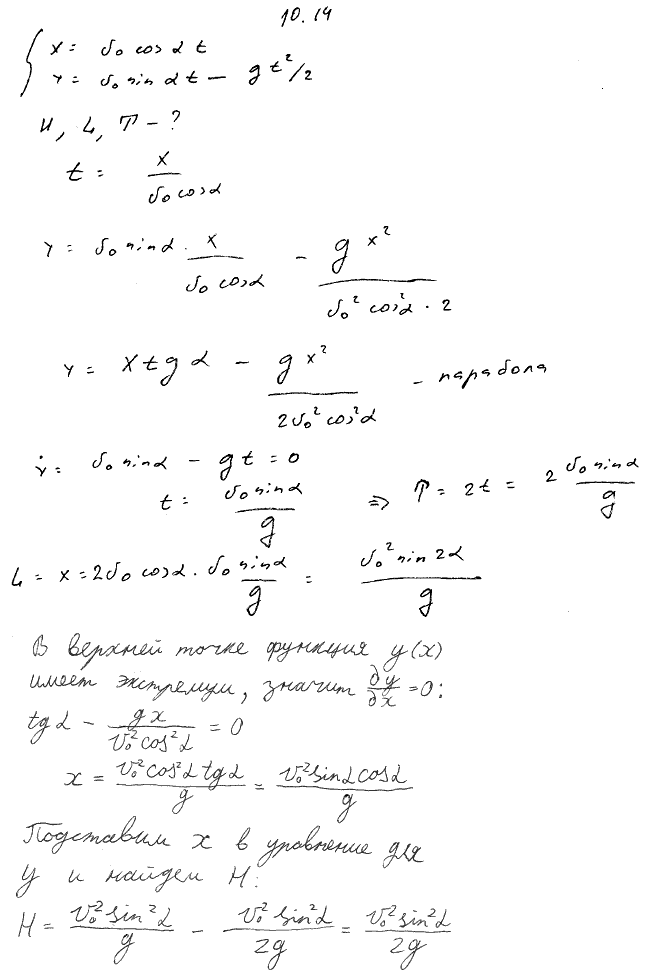 10.14
{ x = v₀ cos α t
y = v₀ sin α t − g t²/2
H, L, T − ?
t = x / (v₀ cos α)
y = v₀ sin α · x / (v₀ cos α) − g x² / (v₀² cos² α · 2)
y = x tg α − g x² / (2 v₀² cos² α) − парабола
ẏ = v₀ sin α − g t = 0
t = v₀ sin α / g ⇒ T = 2t = 2 v₀ sin α / g
L = x = 2 v₀ cos α · v₀ sin α / g = v₀² sin 2α / g
В верхней точке функция y(x)
имеет экстремум, значит ∂y/∂x = 0:
tg α − g x / (v₀² cos² α) = 0
x = v₀² cos² α tg α / g = v₀² sin α cos α / g
Подставим x в уравнение для
y и найдем H:
H = v₀² sin² α / g − v₀² sin² α / 2g = v₀² sin² α / 2g